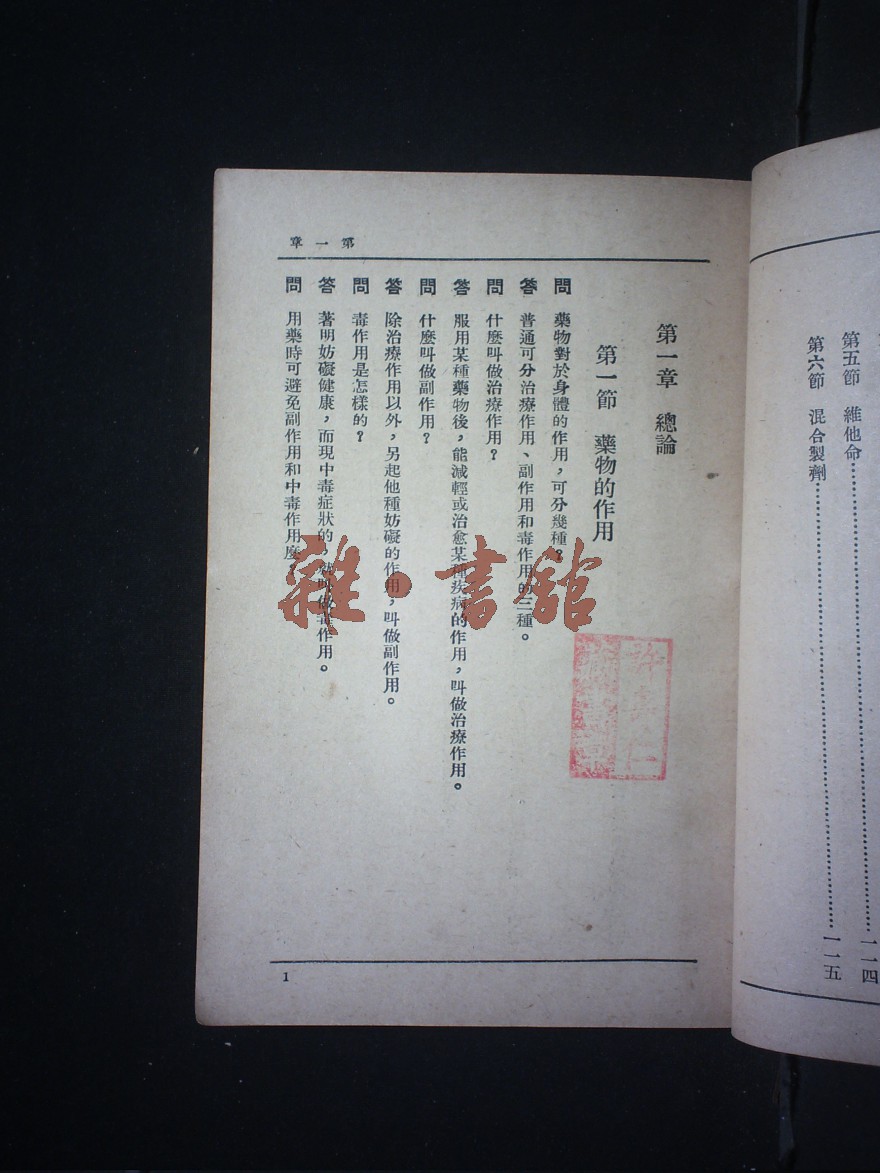 第五節　維他命……………………一一四
第六節　混合製劑……………………一一五
第一章
第一章　總論
第一節　藥物的作用
問　藥物對於身體的作用，可分幾種？
答　普通可分治療作用、副作用和毒作用的三種。
問　什麼叫做治療作用？
答　服用某種藥物後，能減輕或治愈某種疾病的作用，叫做治療作用。
問　什麼叫做副作用？
答　除治療作用以外，另起他種妨礙的作用，叫做副作用。
問　毒作用是怎樣的？
答　著明妨礙健康，而現中毒症狀的，就叫做毒作用。
問　用藥時可避免副作用和中毒作用麼？
1
雜·書館